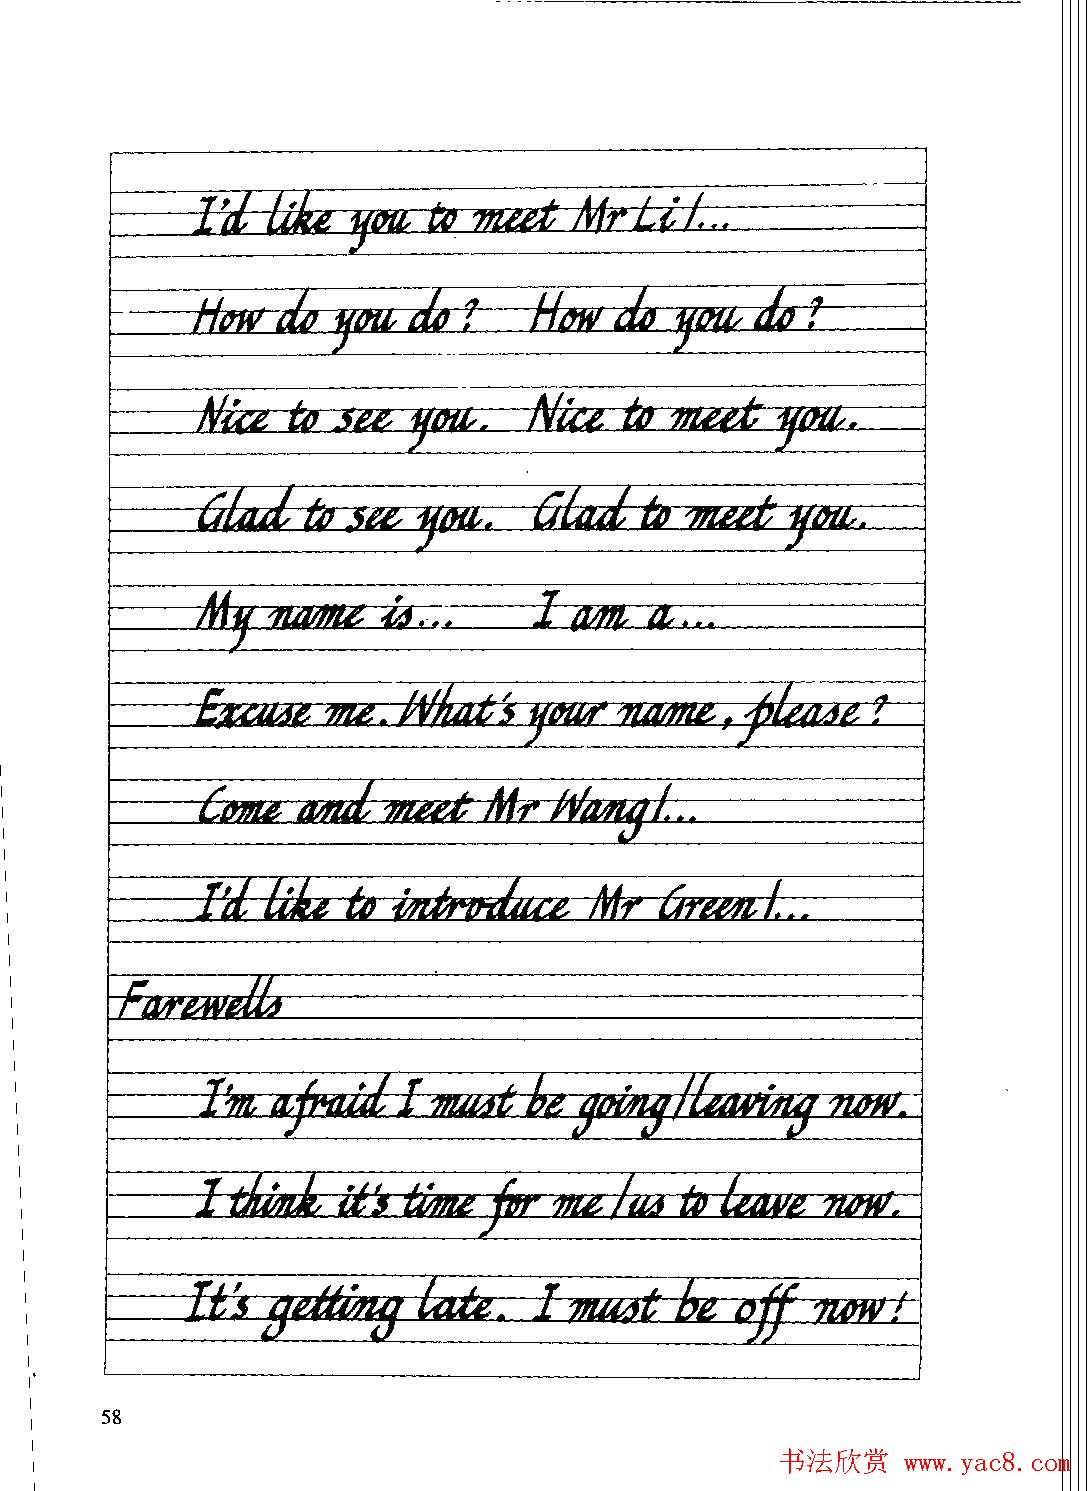 I'd like you to meet Mr Li/...
How do you do? How do you do?
Nice to see you. Nice to meet you.
Glad to see you. Glad to meet you.
My name is... I am a...
Excuse me. What's your name, please?
Come and meet Mr Wang/...
I'd like to introduce Mr Green/...
Farewells
I'm afraid I must be going/leaving now.
I think it's time for me/us to leave now.
It's getting late. I must be off now!
58
书法欣赏 www.yac8.com